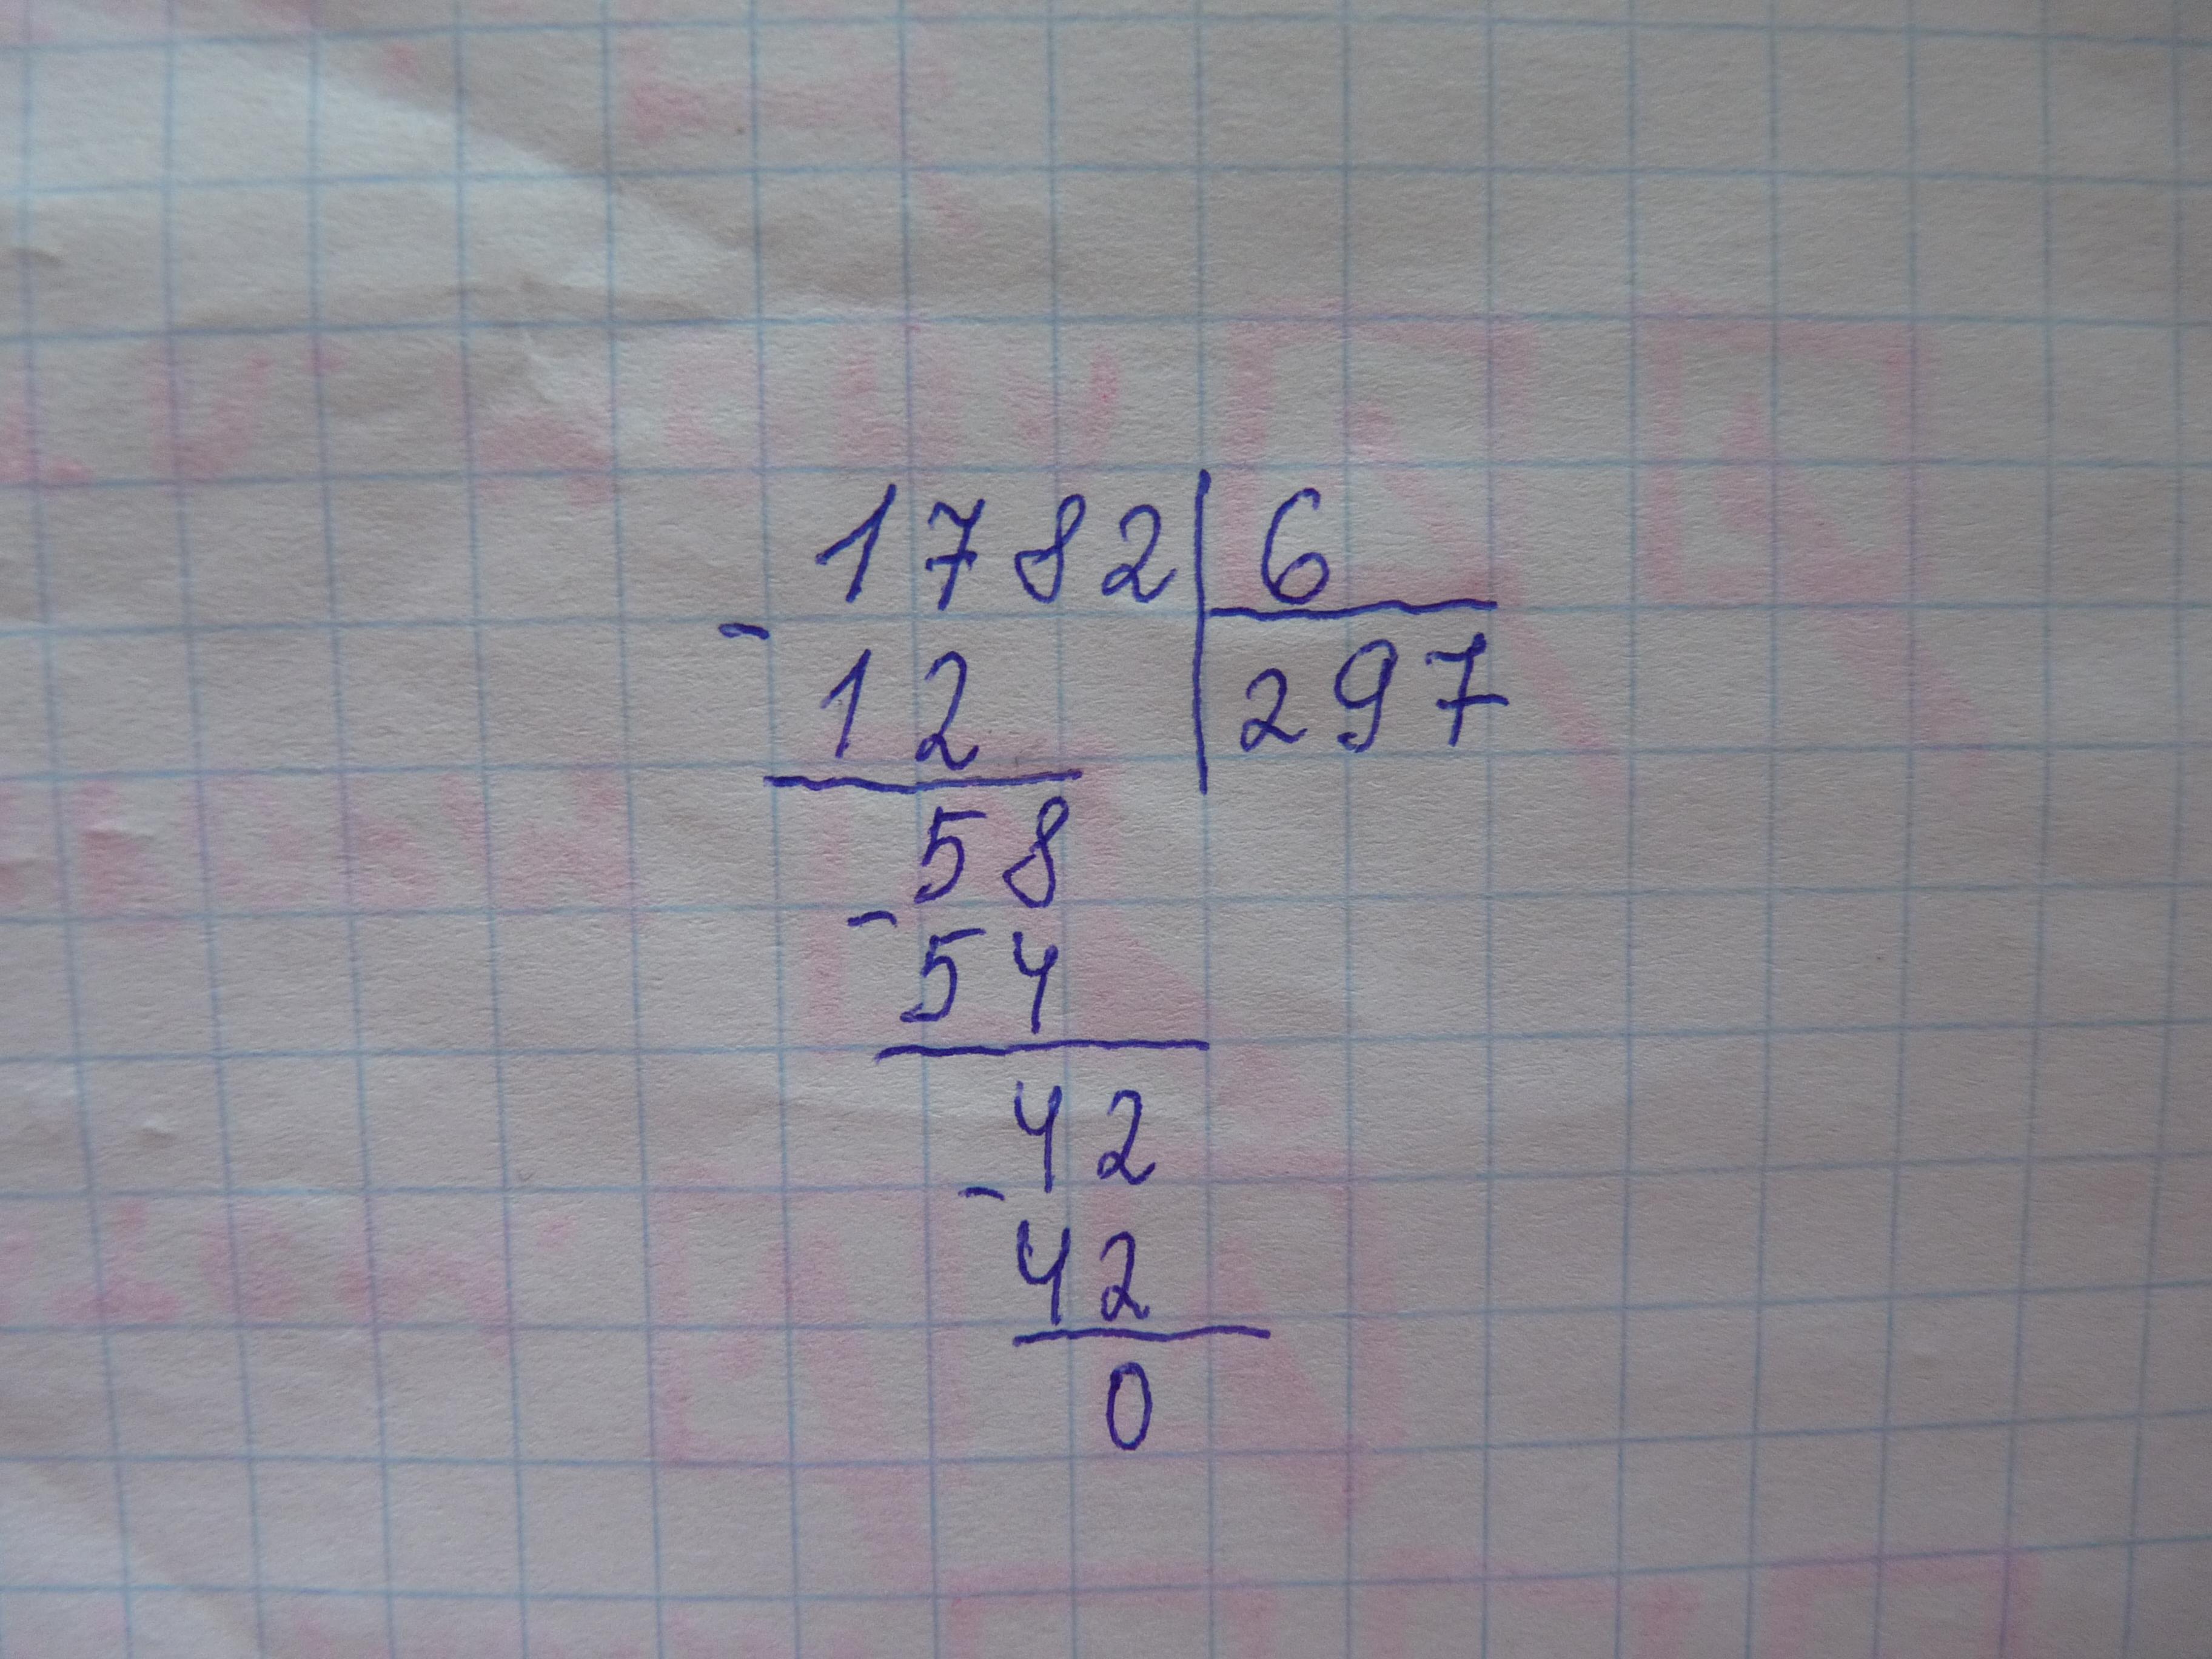 1782 6
- 12 297
58
- 54
42
- 42
0